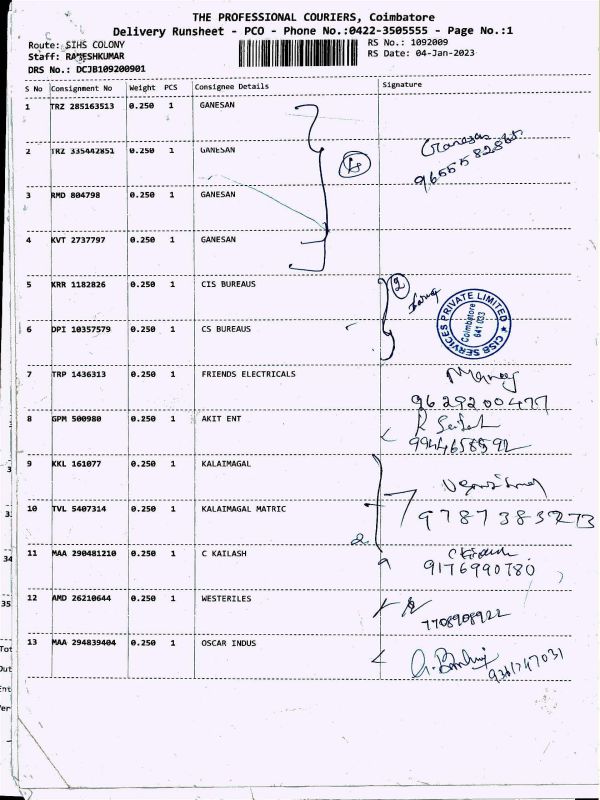 THE PROFESSIONAL COURIERS, Coimbatore
Delivery Runsheet - PCO - Phone No.:0422-3505555 - Page No.:1
Route: SIHS COLONY
RS No.: 1092009
Staff: RAMESHKUMAR
RS Date: 04-Jan-2023
DRS No.: DCJB109200901
S No Consignment No Weight PCS Consignee Details Signature
1 TRZ 285163513 0.250 1 GANESAN
2 TRZ 335442851 0.250 1 GANESAN
4
Ganesan
3 RMD 804798 0.250 1 GANESAN
4 KVT 2737797 0.250 1 GANESAN
5 KRR 1182826 0.250 1 CIS BUREAUS
2
CISB SERVICES PRIVATE LIMITED
Coimbatore
641 033
6 DPI 10357579 0.250 1 CS BUREAUS
7 TRP 1436313 0.250 1 FRIENDS ELECTRICALS
9629200477
8 GPM 500980 0.250 1 AKIT ENT
9944658592
9 KKL 161077 0.250 1 KALAIMAGAL
10 TVL 5407314 0.250 1 KALAIMAGAL MATRIC
9787383273
11 MAA 290481210 0.250 1 C KAILASH
9176990780
12 AMD 26210644 0.250 1 WESTERILES
7708908922
13 MAA 294839404 0.250 1 OSCAR INDUS
9361747031
34
35